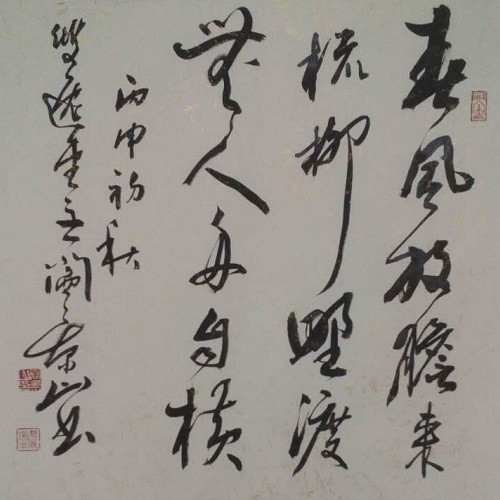 春風放膽来
梳柳野渡
無人舟自横
丙申初秋
山書